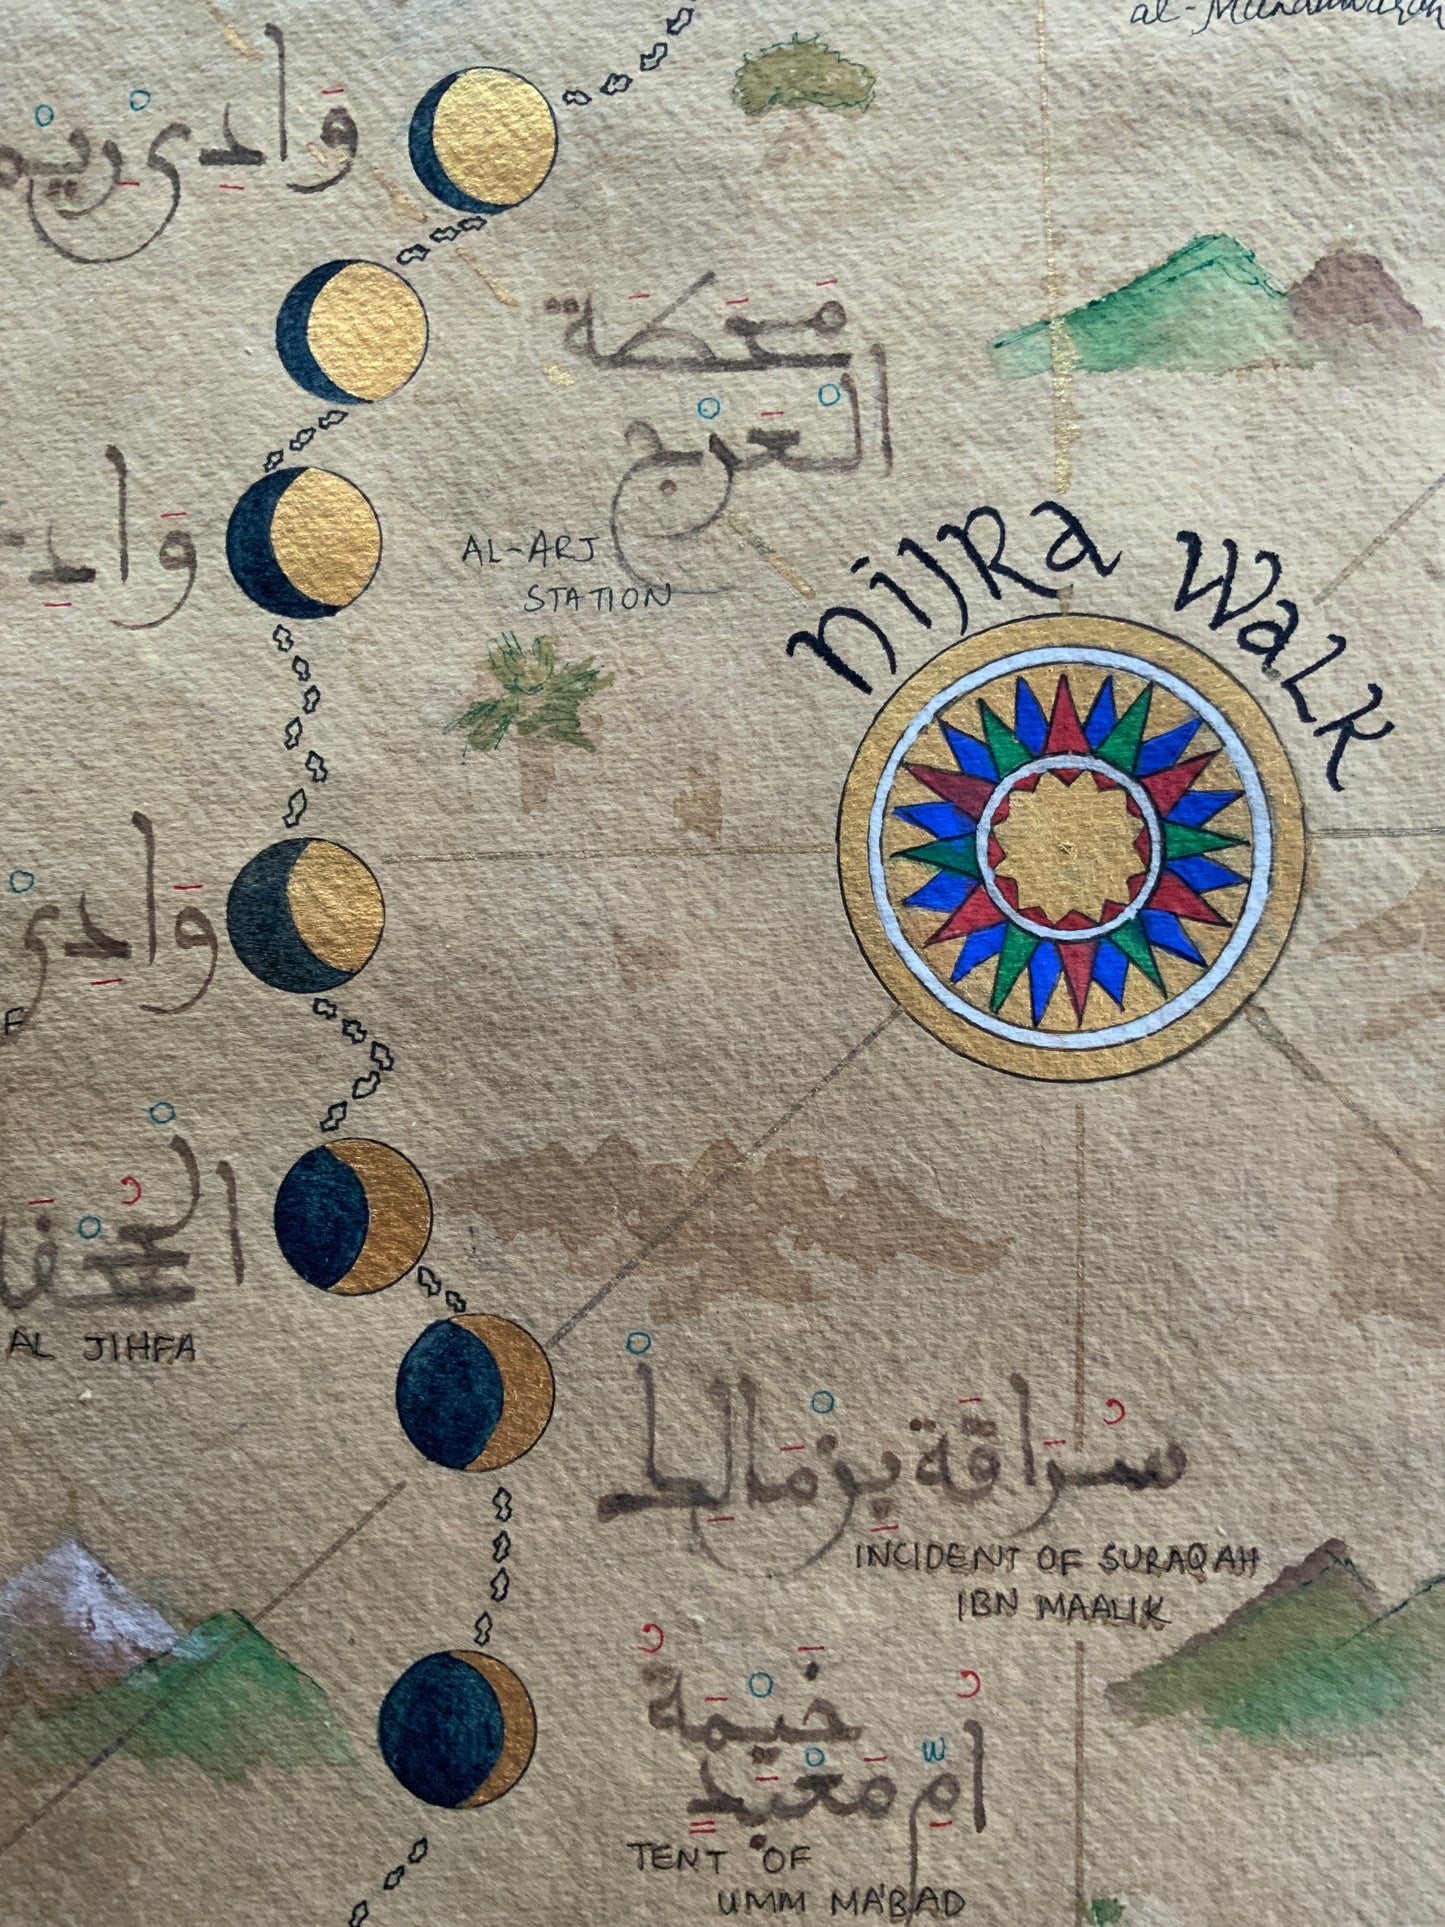 al-Munawwarah
وَادِيْ رِيْم
مَحَطَّة
الْعَرْج
AL-ARJ
STATION
HIJRA WALK
وَادِ
وَادِيْ
F
الْجُحْفَا
AL JIHFA
سُرَاقَة بِنْ مَالِكْ
INCIDENT OF SURAQAH
IBN MAALIK
خَيْمَةُ
أُمِّ مَعْبَدٍ
TENT OF
UMM MA'BAD